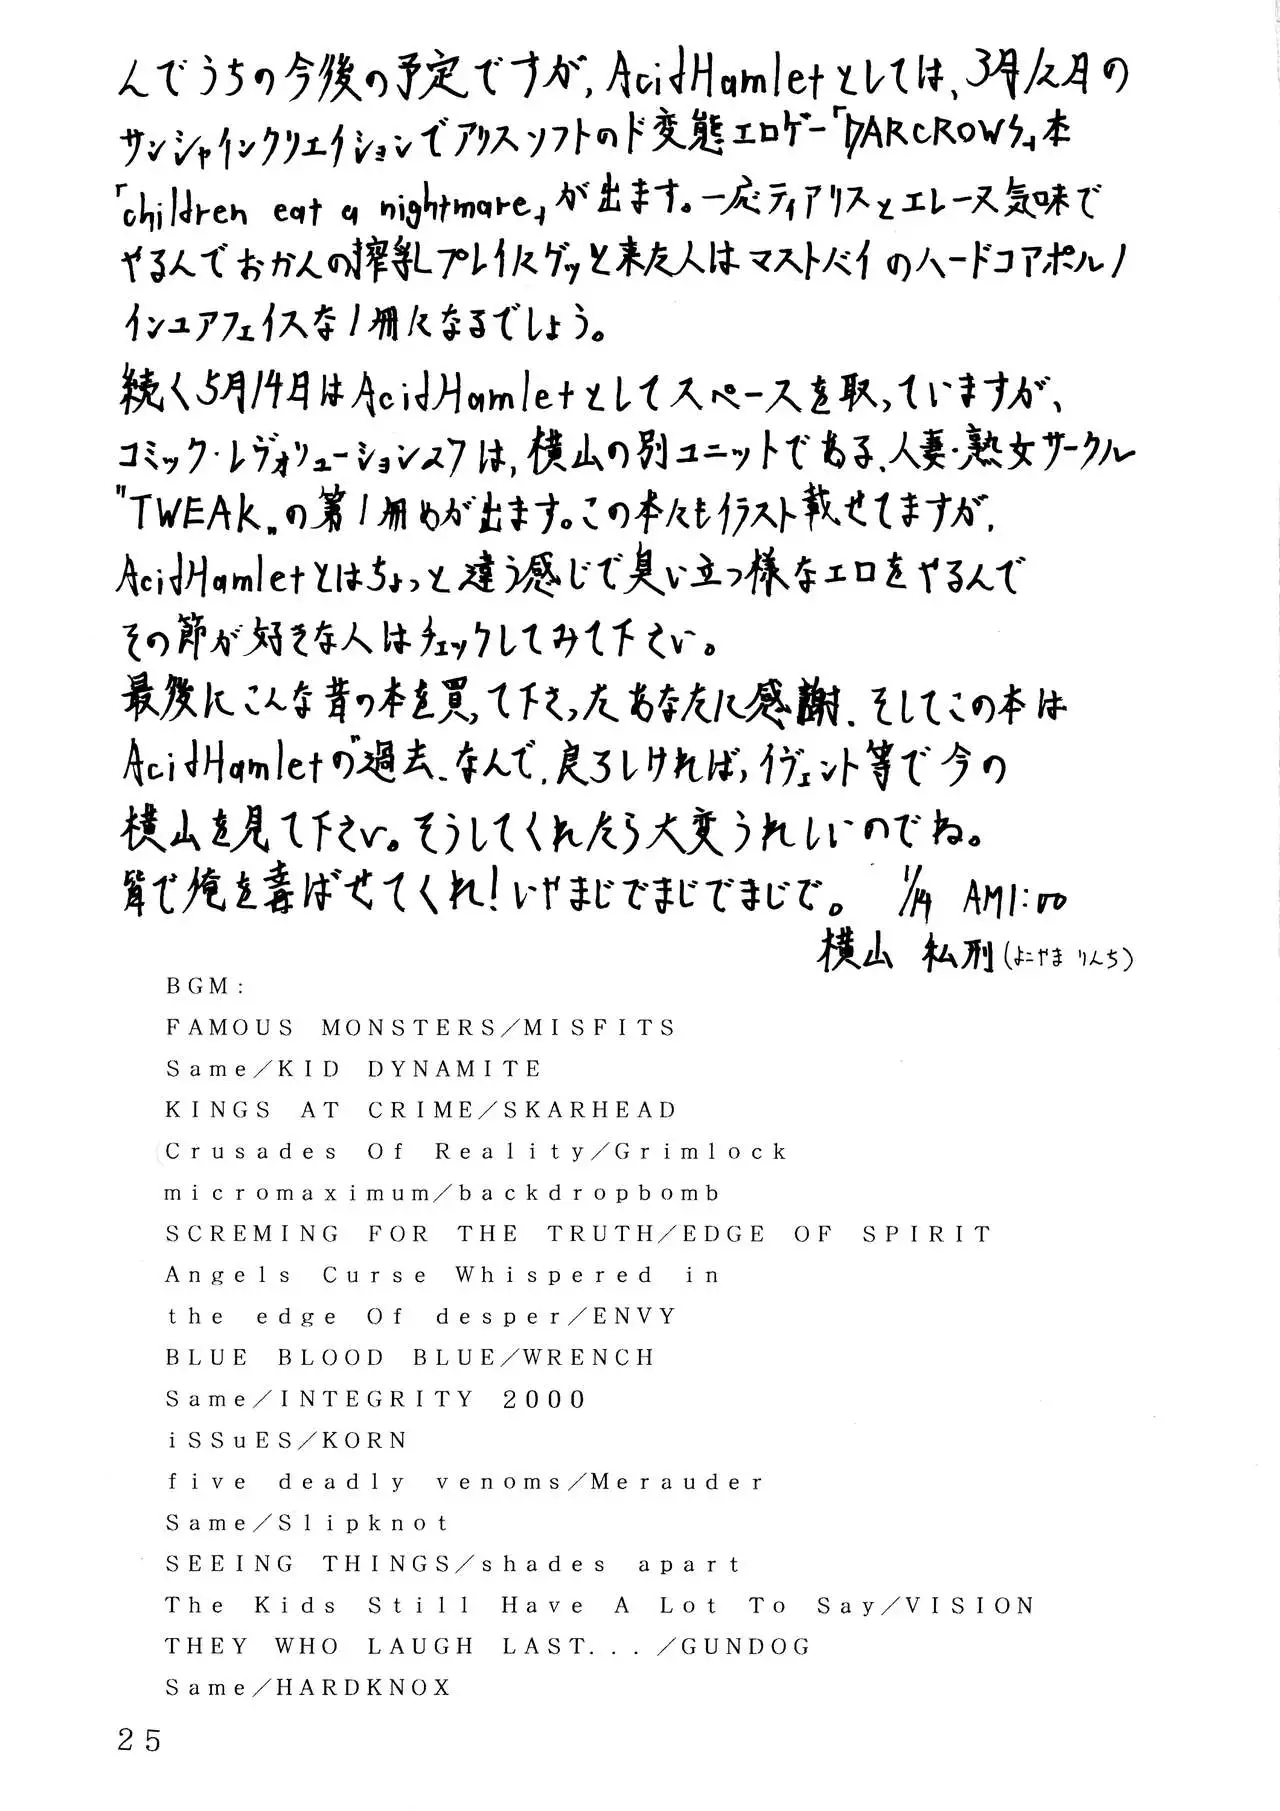 んでうちの今後の予定ですが、AcidHamletとしては、3月12日の
サンシャインクリエイションでアリスソフトのド変態エロゲー「DARCROWS」本
「children eat a nightmare」が出ます。一応ティアリスとエレーヌ気味で
やるんでおかんの搾乳プレイにゲッと来た人はマストバイのハードコアポルノ
インユアフェイスな1冊になるでしょう。
続く5月14日はAcidHamletとしてスペースを取っていますが、
コミック・レヴォリューション27は、横山の別ユニットである、人妻・熟女サークル
"TWEAK"の第1冊めが出ます。この本にもイラスト載せてますが、
AcidHamletとはちょっと違う感じで臭い立つ様なエロをやるんで
その節が好きな人はチェックしてみて下さい。
最後にこんな昔の本を買って下さったあなたに感謝、そしてこの本は
AcidHamletの"過去"なんで、良ろしければ、イヴェント等で今の
横山を見て下さい。そうしてくれたら大変うれしいのでね。
皆で俺を喜ばせてくれ!いやまじでまじでまじで。 1/14 AM1:00
横山 私刑(よこやま りんち)
BGM:
FAMOUS MONSTERS/MISFITS
Same/KID DYNAMITE
KINGS AT CRIME/SKARHEAD
Crusades Of Reality/Grimlock
micromaximum/backdropbomb
SCREMING FOR THE TRUTH/EDGE OF SPIRIT
Angels Curse Whispered in
the edge Of desper/ENVY
BLUE BLOOD BLUE/WRENCH
Same/INTEGRITY 2000
iSSuES/KORN
five deadly venoms/Merauder
Same/Slipknot
SEEING THINGS/shades apart
The Kids Still Have A Lot To Say/VISION
THEY WHO LAUGH LAST.../GUNDOG
Same/HARDKNOX
25